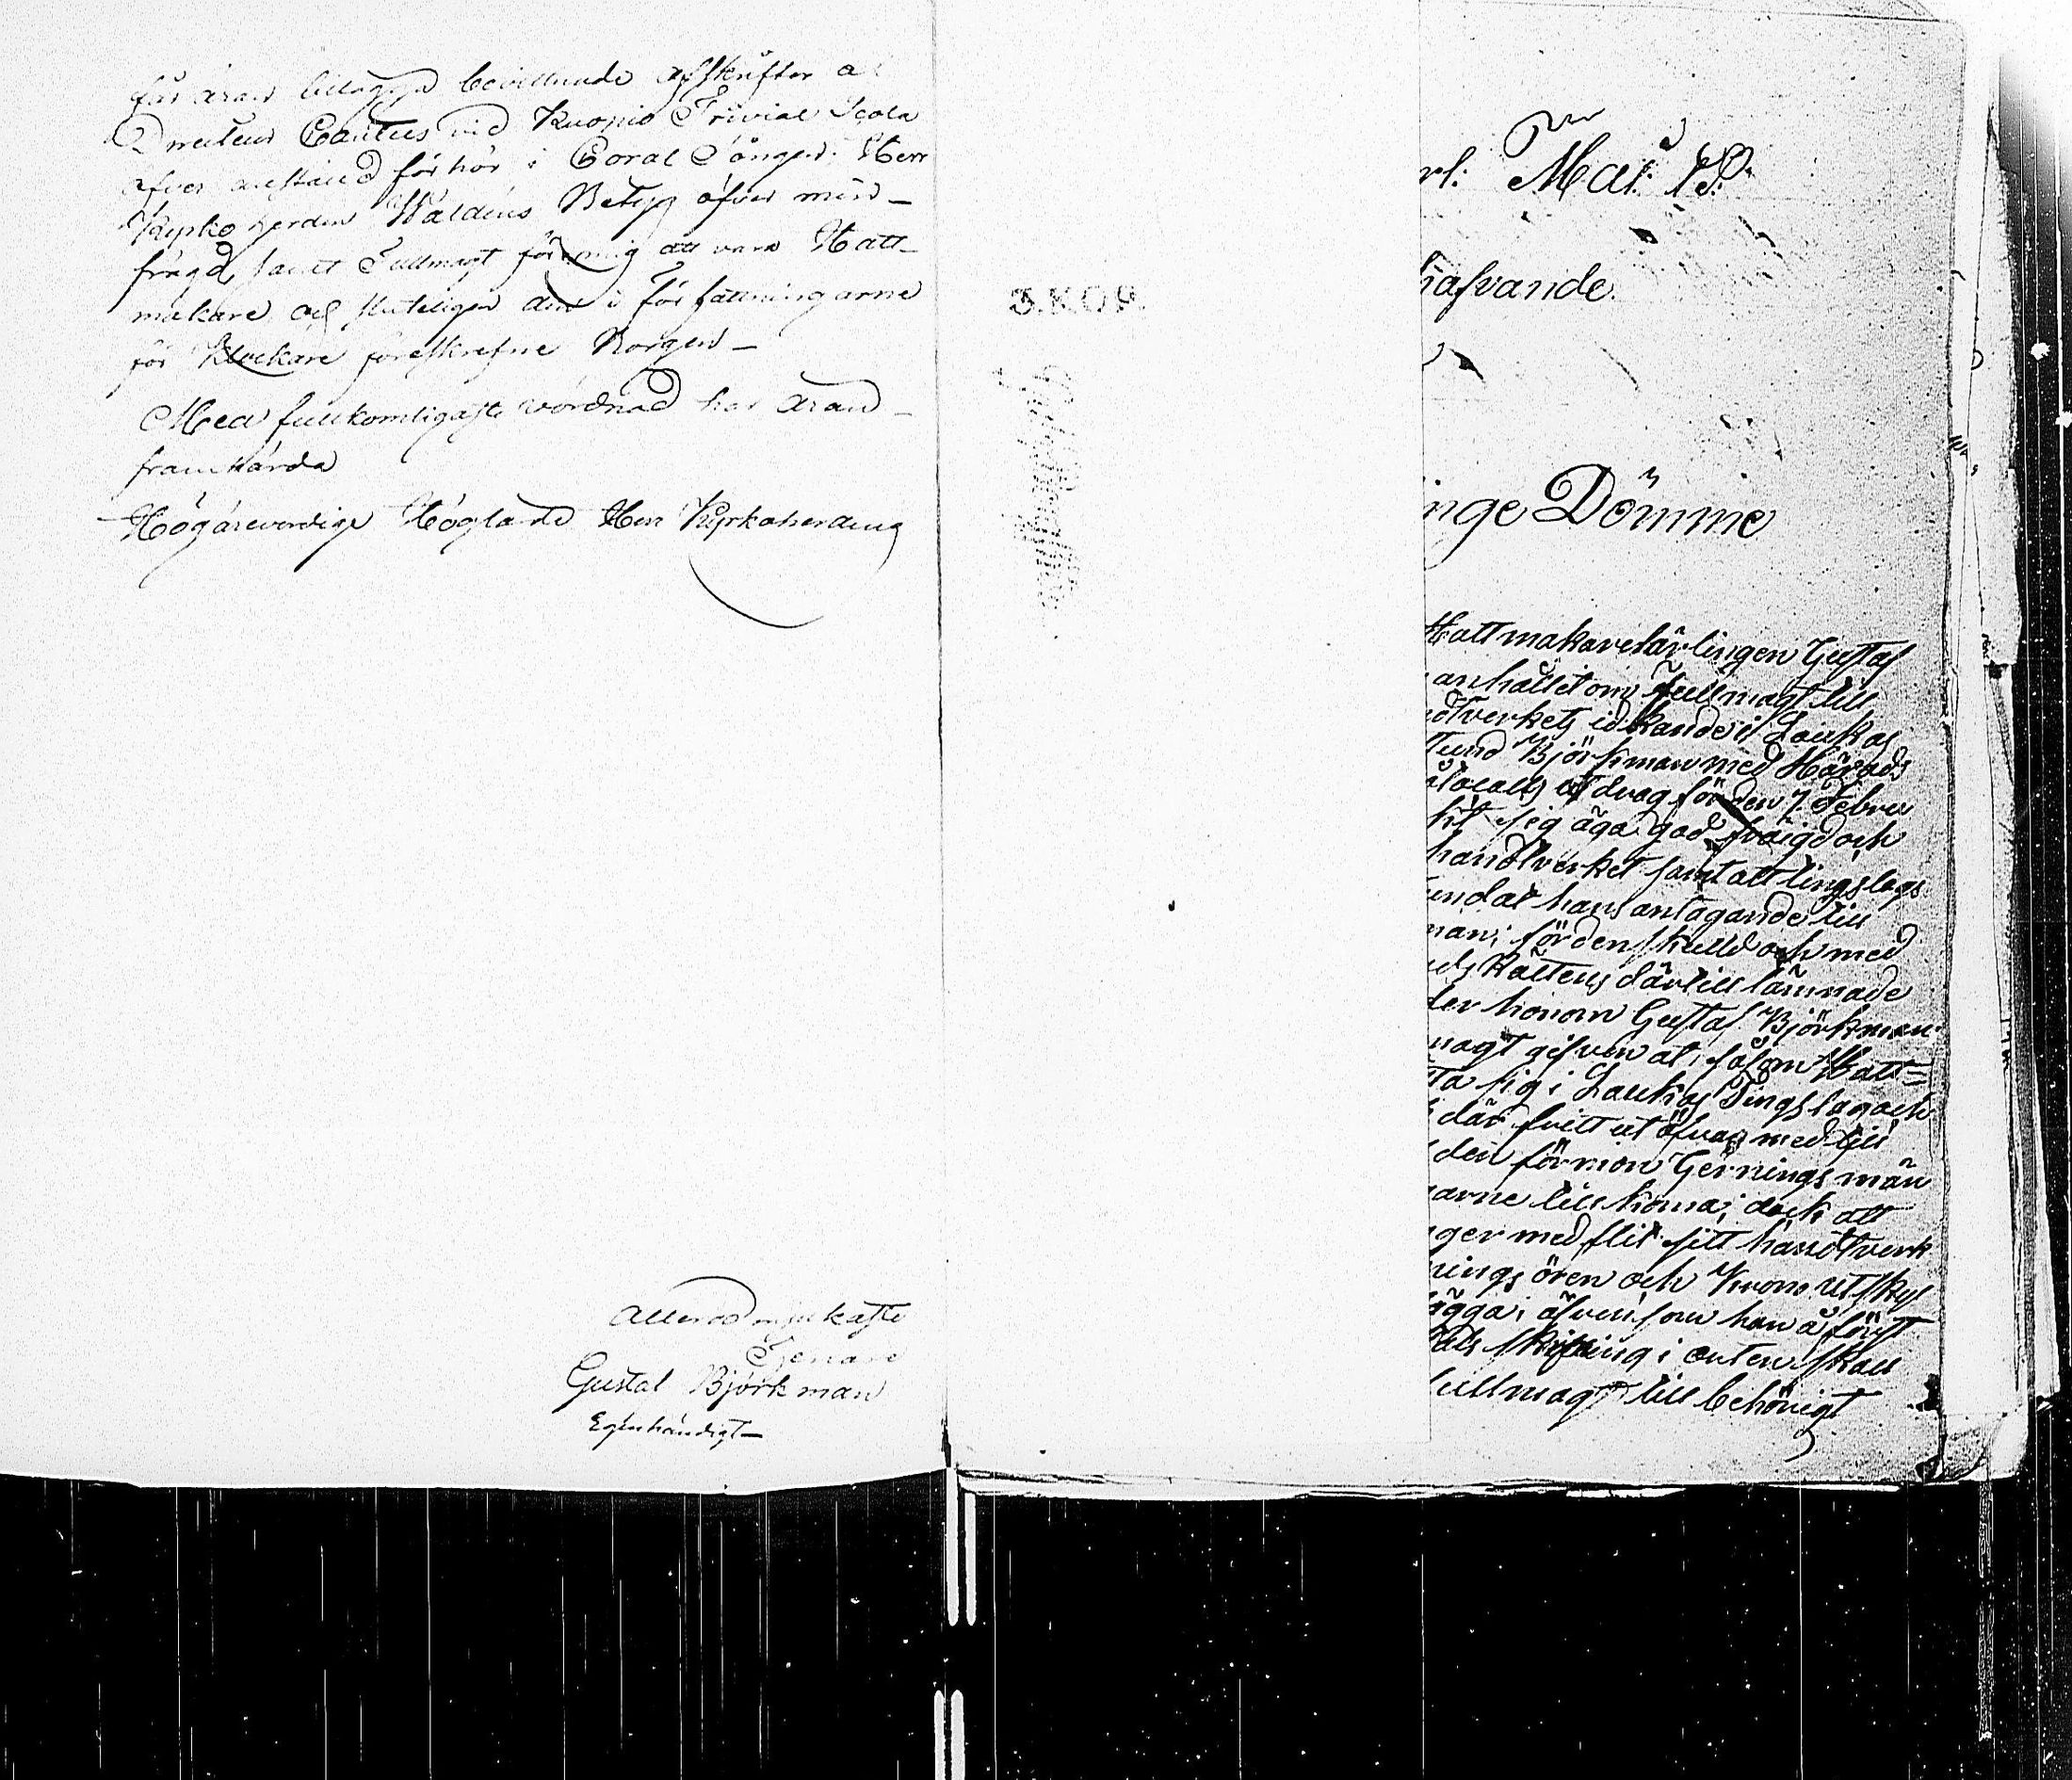 får äran bilägga bevittnade afskrifter af
Directeur Cantus vid Kuonio Trivial Scola
öfver anstäld förhör i Coral Sången: Herr
Kyrkoherden Waldens Betyg öfver min
frägd, samt Fullmagt för mig att vara Hatt-
makare, och sluteligen den i författningarne
för Klockare föreskrefne Borgen
Med fullkomligaste vördnad har äran
framhärda
Högärevördige Höglärde Herr Kyrkoherdens
allerödmjukaste
Tjenare
Gustaf Björkman
Egenhändigt
3.KOP.
rl: Mai: ts:
hafvande
inge Dömme
Hattmakarelärlingen Gustaf
anhållit om fullmagt till
ndtverkets idkande i Laukas
stund Björkman med Härads
utdrag för den 7. Februa
sig äga god frägd och
handtverket samt att tingslags
undat hans antagande till
män; för den skulld och med
ds Rättens därtill lämnade
der honom Gustaf Björkman
magt gifven at, såsom Hatt=
ta sig i Laukas Tingslag och
där fritt utöfva, med till
den förmon Gernings män
arne tillkoma; dock att
ger med flit sitt handtverk
nings ören och Krono utskyl
lägga; äfvensom han å först
skrifning i orten skall
fullmagt till behörigt